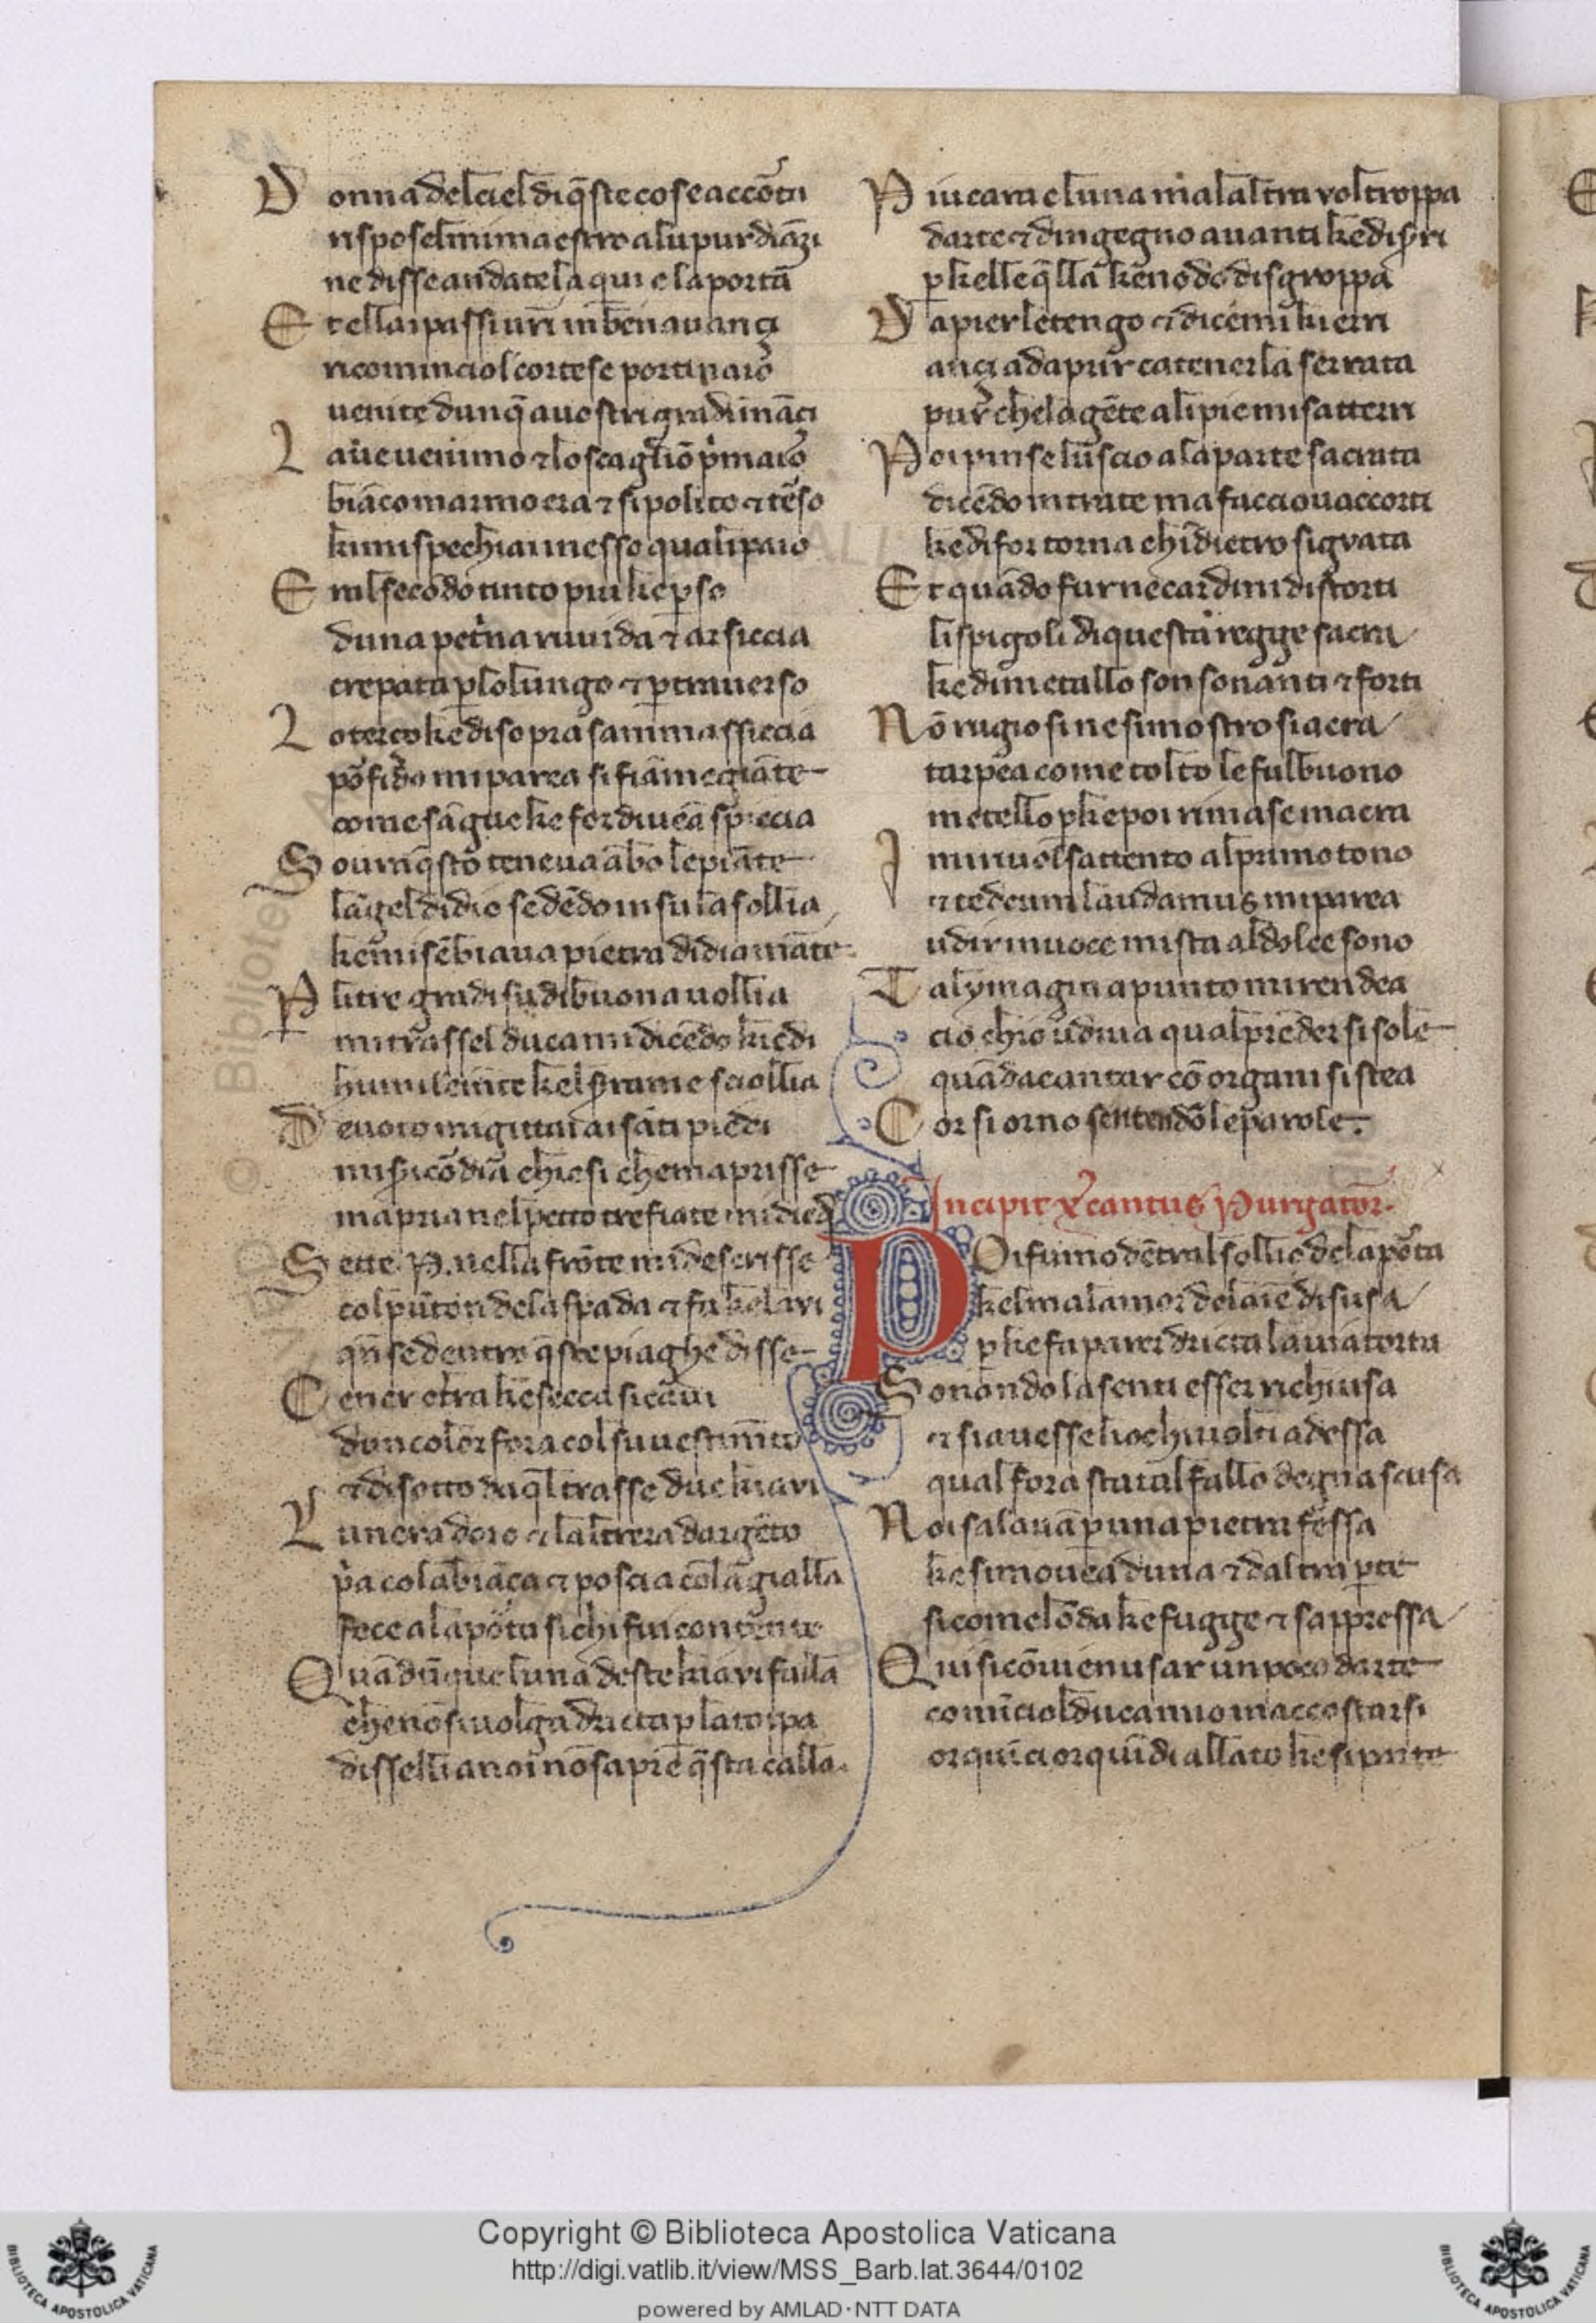 Donna del ciel di q̄ste cose accōta
rispose lmi maestro a lu pur diāzi
ne disse andate la qui e la porta
Et ella i passi ur̄i in bēn auanҫi
ricomincio l cortese portinaio
uenite dunq̄ a uostri gradi ināҫi
La ue uenimo ⁊ lo scaglīō p̄maio
biāco marmo era ⁊ si polito ⁊ tēso
kimi spechiai in esso qual i paio
Era l secōdo tinto piu ke p̱so
duna petrina ruuida ⁊ arsiccia
crepata p̱ lo lungo ⁊ p̱ trauerso
Lo terҫo ke di sopra samassiccia
pōfido mi parea si fiāmegiāte
come sāgue ke for di uēa spiccia
Soura q̄sto teneua ābo le piāte
lāgel di dio sedēdo in su la sollia
ke mi sēbiaua pietra di diamāte
P̱ li tre gradi su di buona uollia
mi trasse l duca mi dicēdo kiedi
humilemēte ke l s̱rame sciollia
Deuoto mi gittai ai sāti piedi
mis̱icōdia chiesi che maprisse
ma pria nel pecto tre fiate mi diedi
Sette .P. nella frōte mi descrisse
col pūton de la spada ⁊ fa ke laui
qn̄ se dentro q̄ste piaghe disse
Cener o tra ke secca si caui
dun color fora col suo uestimēto
⁊ di sotto da ql̄ trasse due kiavi
Luna era doro ⁊ laltrera dargēto
p̄a co la biāca ⁊ poscia cō la gialla
fece a la pōta si chi fui contento
Quādūque luna deste kiavi falla
che nō si uolga dricta p̱ la toppa
disselli a noi nō sapre q̄sta calla.
Piu cara e luna ma laltra vol troppa
darte ⁊ dingegno auanti ke dis̱ri
p̱ kelle q̄lla ke nodo disgroppa
Da pier le tengo ⁊ dicemi kierri
anҫi ad apur ca tenerla serrata
pur che la gēte a li pie mi satterri
Poi pinse luscio a la parte sacrata
dicēdo intrate ma facciouaccorti
ke di for torna chi dietro si guata
Et quādo fur ne cardini distorti
li spigoli di questa regge sacra
ke di metallo son sonanti ⁊ forti
Nō rugio si ne si mostro si acra
tarpea come tolto le fu l buono
metello p̱ ke poi rimase macra
I mi uolsi attento al primo tono
⁊ te deum laudamus mi parea
udir in uoce mista al dolce sono
Tal ymagina punto mi rendea
cio chio udiua qual prēder si sole
quādo a cantar cō organi si stea
Cor si or no sentendō le parole.
Incipit x̊ cantus Purgator̄.
Poi fumo dētral sollio de la pōta
ke l mal amor de laīe disusa
p̱ ke fa parer dricta la uia torta
Sonando la senti esser richiusa
⁊ siauesse liochi uolti ad essa
qual fora stata l fallo degna scusa
Noi salauā p̱ una pietra fessa
ke si mouea duna ⁊ daltra p̱te
si come lōda ke fugge ⁊ sappressa
Qui si cōuien usar un poco darte
comīcio l duca nuo in accostarsi
or quīci or quīdi allato ke si parte
Copyright © Biblioteca Apostolica Vaticana
http://digi.vatlib.it/view/MSS_Barb.lat.3644/0102
powered by AMLAD·NTT DATA
BIBLIOTECA APOSTOLICA VATICANA
BIBLIOTECA APOSTOLICA VATICANA